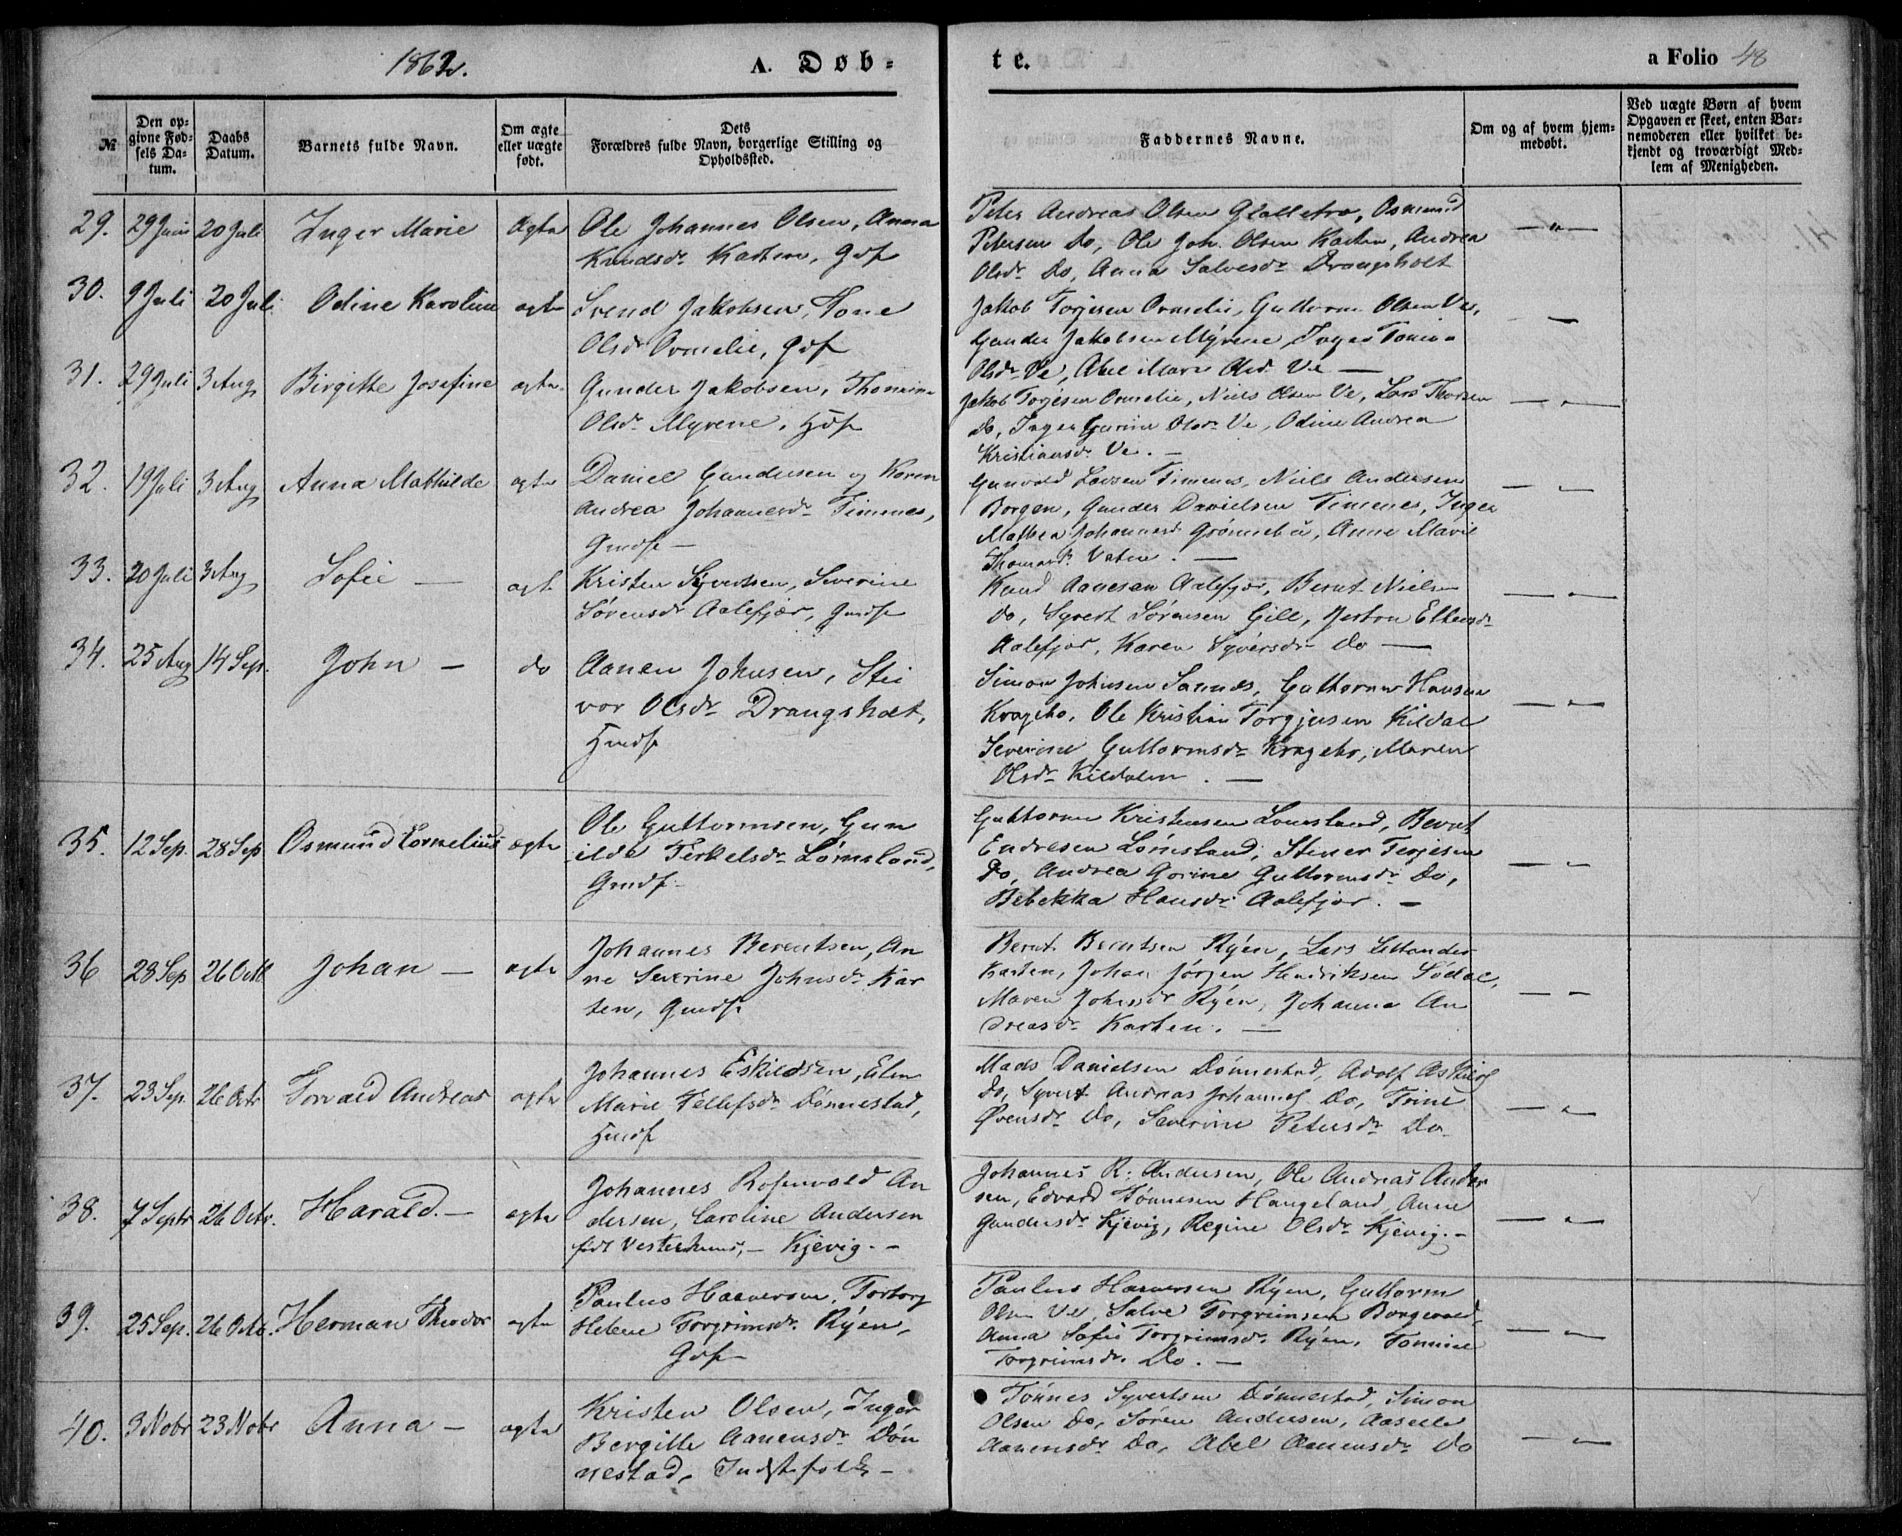 1862.
A. Døb-
te.
a Folio 48
№
Den op-
givne Fød-
sels Da-
tum.
Daabs
Datum.
Barnets fulde Navn.
Om ægte
eller uægte
født.
Dets
Forældres fulde Navn, borgerlige Stilling og
Opholdssted.
Faddernes Navne.
Om og af hvem hjem-
medøbt.
Ved uægte Børn af hvem
Opgaven er skeet, enten Bar-
nemoderen eller hvilket be-
kjendt og troværdigt Med-
lem af Menigheden.
29. 29 Juni 20 Juli Inger Marie ægte
Ole Johannes Olsen, Anna
Knudsdr Karten, Gdf
Peter Andreas Olsen Osmund
Petersen do, Ole Joh. Olsen Karten, Andrea
Olsdr Do, Anna Salvesdr Drangsholt
30. 9 Juli 20 Juli Odine Karoline ægte
Svend Jakobsen, Tone
Olsdr Ormelie, Gdf
Jakob Torjesen Ormelie, Guttorm Olsen Ve,
Gunder Jakobsen Myrene, Inger Tomi-
Olsdr Ve, Abel Marie Olsd Ve —
31. 29 Juli 3 Aug Birgitte Josefine ægte
Gunder Jakobsen, Thomin-
Olsdr Myrene, Hdf
Jakob Torjesen Ormelie, Niels Olsen Ve, Lars Thorsen
do, Inger Gurine Olsdr Ve, Odine Andrea
Kristiansdr Ve. —
32. 19 Juli 3 Aug Anna Mathilde ægte
Daniel Gundersen og Karen
Andrea Johannesdr Timnes,
Gmdf —
Gunvald Larsen Timenes, Niels Andersen
Borgen, Gunder Danielsen Timenes, Inger
Mathea Johannesd Grønnebu, Anne Marie
Thomasdr Vatne. —
33. 20 Juli 3 Aug Sofie — ægte
Kristen Syvertsen, Severine
Sørensdr Aalefjær, Gmdf
Knud Aanesen Aalefjær, Bernt Nielsen
do, Syvert Sørensen Gill,
Aalefjær, Karen Syversdr Do —
34. 25 Aug 14 Sep. John — do
Aanen Johnsen, Sti
vor Olsdr Drangsholt,
Hmdf
Simon Johnsen Guttorm Hansen
Kragebo, Ole Kristian Torgjusen Kildal
Severine Guttormsdr Kragebo, Maren
Olsdr Kildalen. —
35. 12 Sep. 28 Sep Osmund Cornelius ægte
Ole Guttormsen, Gun
ilde Terkelsdr Lømsland,
Gmdf
Guttorm Kristensen Lømsland, Bernt
Endresen Lømsland, Stener Terjesen
Do, Andrea Gorine Guttormsdr Do,
Bebekka Hansdr Aalefjær. —
36 28 Sep 26 Octb Johan — ægte
Johannes Berentsen, An
ne Severine Johnsdr Kar
ten, Gmdf
Bernt Berntsen Ryen, Lars
Karten, Johan Jørgen Hendriksen Sødal,
Maren Johnsdr Ryen, Johanna An
dreasdr Karten. —
37. 23 Sep. 26 Octr Torvald Andreas ægte
Johannes Eskildsen, Elen
Marie Tellefsdr Dønnestad,
Hmdf
Mads Danielsen Dønnestad, Adolf
Do, Syvert Andreas Johannes Do, Trine
Øvensdr Do, Severine Petersdr Do
38. 7 Septr 26 Octr. Harald. — ægte
Johannes Rosenvold An
dersen, Caroline Andersen
født Vesterhuus, — Kjevig. —
Johannes R. Andersen, Ole Andreas Ander
sen, Edvard Tønnesen Haugeland, Anne
Gundersdr Kjevig, Regine Olsdr Kjevig. —
39. 25 Sep. 26 Octb. Herman Theodor ægte
Paulus Haaversen, Torborg
Helene Torgrimsdr Ryen,
Gdf
Paulus Haaversen Ryen, Guttorm
Olsen Ve, Salve Torgrimsen Borgevold,
Anna Sofie Torgrimsdr Ryen, Tomine
Torgrimsdr Do. —
40. 3 Nobr 23 Nobr Anna — ægte
Kristen Olsen, Inger
Bergitte Aanensdr Døn
nestad, Indstfolk —
Tønnes Syvertsen Dønnestad, Simon
Olsen Do, Søren Andersen, Aaselle
Aanensdr Do, Abel Aanensdr Do